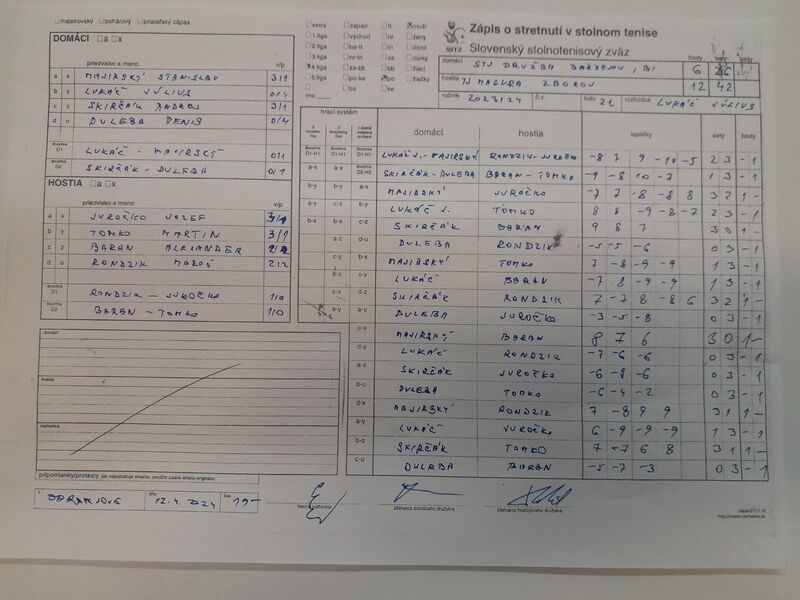 majstrovský pohárový priateľský zápas
DOMÁCI a x
priezvisko a meno v/p
a x MAJIRSKÝ STANISLAV 3/1
b y LUKÁČ JÚLIUS 0/4
c z SKIRČÁK ANDREJ 3/1
d u DULEBA DENIS 0/4
D1 LUKÁČ - MAJIRSKÝ 0/1
D2 SKIRČÁK - DULEBA 0/1
HOSTIA a x
priezvisko a meno v/p
a x JUROČKO JOZEF
b y TOMKO MARTIN 3/1
c z BARAN ALEXANDER 2/2
d u RONDZIK MAROŠ 2/2
D1 RONDZIK - JUROČKO 1/0
D2 BARAN - TOMKO 1/0
domáci
hostia
rozhodca
pripomienky/protesty (ak nepostačuje priestor, použite zadnú stranu originálu)
BARDEJOV dňa 12.4.2024 čas 19-
hlavný rozhodca zástupca domáceho družstva zástupca hosťujúceho družstva
extra západ tt muži
1.liga východ nr ženy
2.liga ba-tt tn dorci
3.liga nr-tn za dorky
4.liga za-bb bb žiaci
5.liga po-ke po žiačky
ba ke
mo
Zápis o stretnutí v stolnom tenise
Slovenský stolnotenisový zväz
domáci STJ DRUŽBA BARDEJOV "B" body 6 sety
hostia TJ MAGURA ZBOROV 12 42
ročník 2023/24 č.z. kolo 21 rozhodca LUKÁČ JÚLIUS
hrací systém domáci hostia loptičky sety body
D1-H1 D1-H1 D1-H1 LUKÁČ J.-MAJIRSKÝ RONDZIK-JUROČKO -8 7 9 -10 -5 2 3 - 1
a-x a-x D2-H2 SKIRČÁK-DULEBA BARAN-TOMKO -9 -8 10 -7 1 3 - 1
b-y b-y a-x MAJIRSKÝ JUROČKO -7 7 -8 8 8 3 2 1 -
a-y c-z b-y LUKÁČ J. TOMKO 8 8 -9 -8 -7 2 3 - 1
b-x b-x c-z SKIRČÁK BARAN 9 8 7 3 0 1 -
a-z d-u DULEBA RONDZIK -5 -5 -6 0 3 - 1
c-y b-x MAJIRSKÝ TOMKO 7 -8 -9 -9 1 3 - 1
b-z c-y LUKÁČ BARAN -7 8 -9 -9 1 3 - 1
c-x d-z SKIRČÁK RONDZIK 7 -7 8 -8 6 3 2 1 -
a-y a-u DULEBA JUROČKO -3 -5 -8 0 3 - 1
c-x MAJIRSKÝ BARAN 8 7 6 3 0 1 -
d-y LUKÁČ RONDZIK -7 -6 -6 0 3 - 1
a-z SKIRČÁK JUROČKO -6 -8 -6 0 3 - 1
b-u DULEBA TOMKO -6 -4 -2 0 3 - 1
d-x MAJIRSKÝ RONDZIK 7 -8 9 9 3 1 1 -
a-y LUKÁČ JUROČKO 6 -9 -9 -9 1 3 - 1
b-z SKIRČÁK TOMKO 7 -7 6 8 3 1 1 -
c-u DULEBA BARAN -5 -7 -3 0 3 - 1